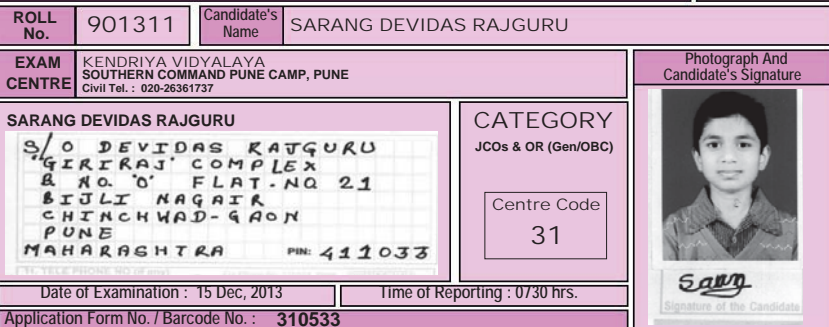 ROLL No. 901311 Candidate's Name SARANG DEVIDAS RAJGURU
EXAM CENTRE KENDRIYA VIDYALAYA
SOUTHERN COMMAND PUNE CAMP, PUNE
Civil Tel. : 020-26361737
Photograph And
Candidate's Signature
SARANG DEVIDAS RAJGURU
S/O DEVIDAS RAJGURU
"GIRIRAJ" COMPLEX
B NO. 'O' FLAT-NO 21
BIJLI NAGAIR
CHINCHWAD-GAON
PUNE
MAHARASHTRA PIN: 411033
CATEGORY
JCOs & OR (Gen/OBC)
Centre Code
31
Signature of the Candidate
Date of Examination : 15 Dec, 2013 Time of Reporting : 0730 hrs.
Application Form No. / Barcode No. : 310533